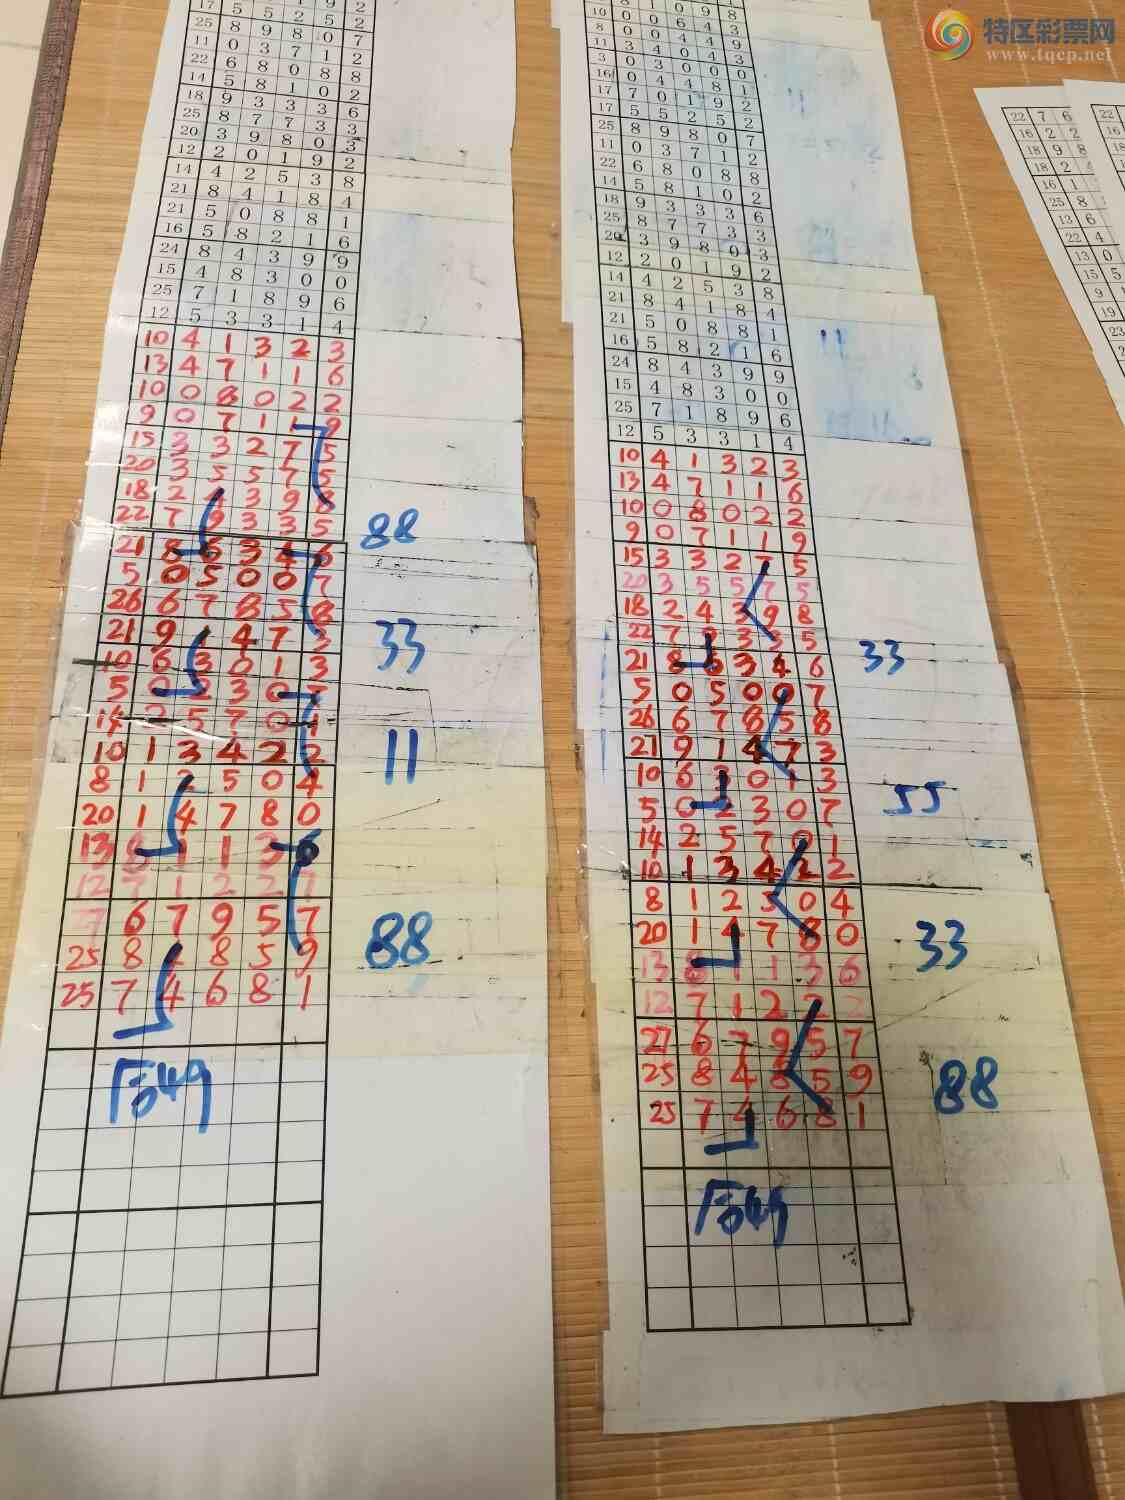 特区彩票网
www.tqcp.net
25 8 9 8 0 7
11 0 3 7 1 2
22 6 8 0 8 8
14 5 8 1 0 2
18 9 3 3 3 6
25 8 7 7 3 3
20 3 9 8 0 3
12 2 0 1 9 2
14 4 2 5 3 8
21 8 4 1 8 4
21 5 0 8 8 1
16 5 8 2 1 6
24 8 4 3 9 9
15 4 8 3 0 0
25 7 1 8 9 6
12 5 3 3 1 4
10 4 1 3 2 3
13 4 7 1 1 6
10 0 8 0 2 2
9 0 7 1 1 9
15 3 3 2 7 5
20 3 5 5 7 5
18 2 4 3 9 8
22 7 9 3 3 5
88
21 8 6 3 4 6
5 0 5 0 0 7
26 6 7 8 5 8
21 9 1 4 7 3
33
10 6 3 0 1 3
5 0 2 3 0 7
14 2 5 7 0 1
10 1 3 4 2 2
11
8 1 2 5 0 4
20 1 4 7 8 0
13 8 1 1 3 6
12 7 1 2 2
27 6 7 9 5 7
25 8 4 8 5 9
88
25 7 4 6 8 1
后49
8 0 0 4 4 9
11 3 4 0 4 3
3 0 3 0 0 0
16 0 4 4 8 1
17 7 0 1 9 2
17 5 5 2 5 2
25 8 9 8 0 7
11 0 3 7 1 2
22 6 8 0 8 8
14 5 8 1 0 2
18 9 3 3 3 6
25 8 7 7 3 3
20 3 9 8 0 3
12 2 0 1 9 2
14 4 2 5 3 8
21 8 4 1 8 4
21 5 0 8 8 1
16 5 8 2 1 6
24 8 4 3 9 9
15 4 8 3 0 0
25 7 1 8 9 6
12 5 3 3 1 4
10 4 1 3 2 3
13 4 7 1 1 6
10 0 8 0 2 2
9 0 7 1 1 9
15 3 3 2 7 5
20 3 5 5 7 5
18 2 4 3 9 8
22 7 9 3 3 5
33
21 8 6 3 4 6
5 0 5 0 0 7
26 6 7 8 5 8
21 9 1 4 7 3
10 6 3 0 1 3
55
5 0 2 3 0 7
14 2 5 7 0 1
10 1 3 4 2 2
8 1 2 5 0 4
20 1 4 7 8 0
33
13 8 1 1 3 6
12 7 1 2 2 2
27 6 7 9 5 7
25 8 4 8 5 9
88
25 7 4 6 8 1
后49
22 7 6
16 2 2
18 9 8
18 2 4
16 1
25 8
13 6
22 4
13 0
15 5
9
19
23